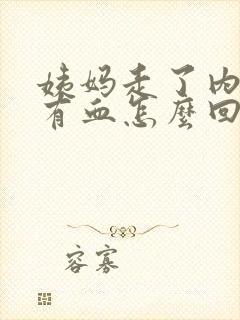 姨妈走了内
有血怎麼回
容寡